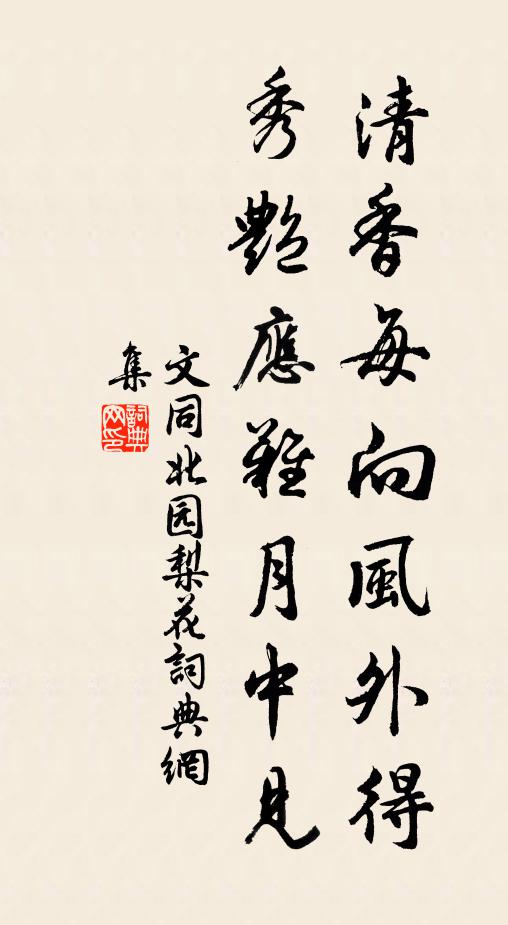 清香每向風外得
秀艷應難月中見
文同北园梨花詞典網
集
詞典
网印